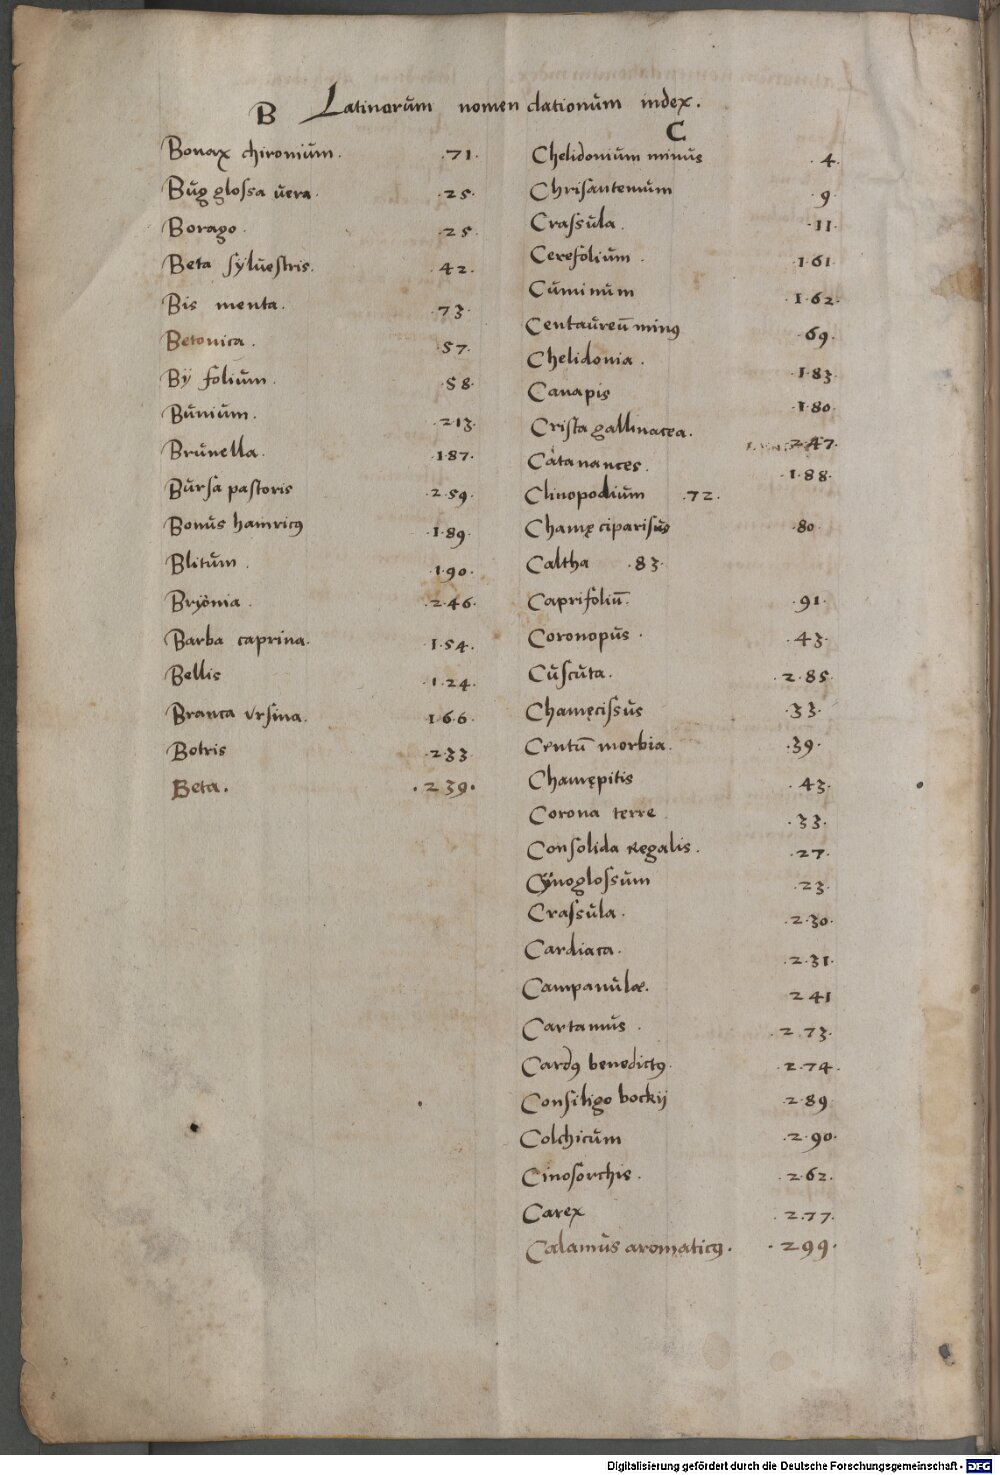 Latinarum nomendationum index.
B
Bonax chironium. .71.
Bugglossa uera. .25.
Borago. .25.
Beta sÿluestris. .42.
Bis menta. .73.
Betonica. .57.
Bÿ folium. .58.
Bunium. .213.
Brunella. .187.
Bursa pastoris .259.
Bonus hainricꝰ .189.
Blitum. .190.
Bryonia. .246.
Barba caprina. .154.
Bellis .124.
Branca vrsina. 166.
Botris .233
Beta. .239.
C
Chelidonium minus .4.
Chrisantemum .9.
Crassula. .11.
Cerefolium. .161.
Cuminum .162.
Centaureū minꝰ .69.
Chelidonia. .183.
Canapis .180.
Crista gallinacea. 247.
Catanances. .188.
Clinopodium .72.
Chamę ciparisus .80.
Caltha .83.
Caprifoliū. .91.
Coronopus. .43.
Cuscuta. .285.
Chamęcissus .33.
Centū morbia. .39.
Chamępitis .43.
Corona terre .33.
Consolida Regalis. .27.
Cÿnoglossum .23.
Crassula. .230.
Cardiaca. .231.
Campanulæ. 241
Cartamus. .273.
Cardꝰ benedictꝰ. .274.
Consiligo bockij .289.
Colchicum .290.
Cinosorchis. .262.
Carex .277.
Calamus aromaticꝰ. .299.
Digitalisierung gefördert durch die Deutsche Forschungsgemeinschaft - DFG